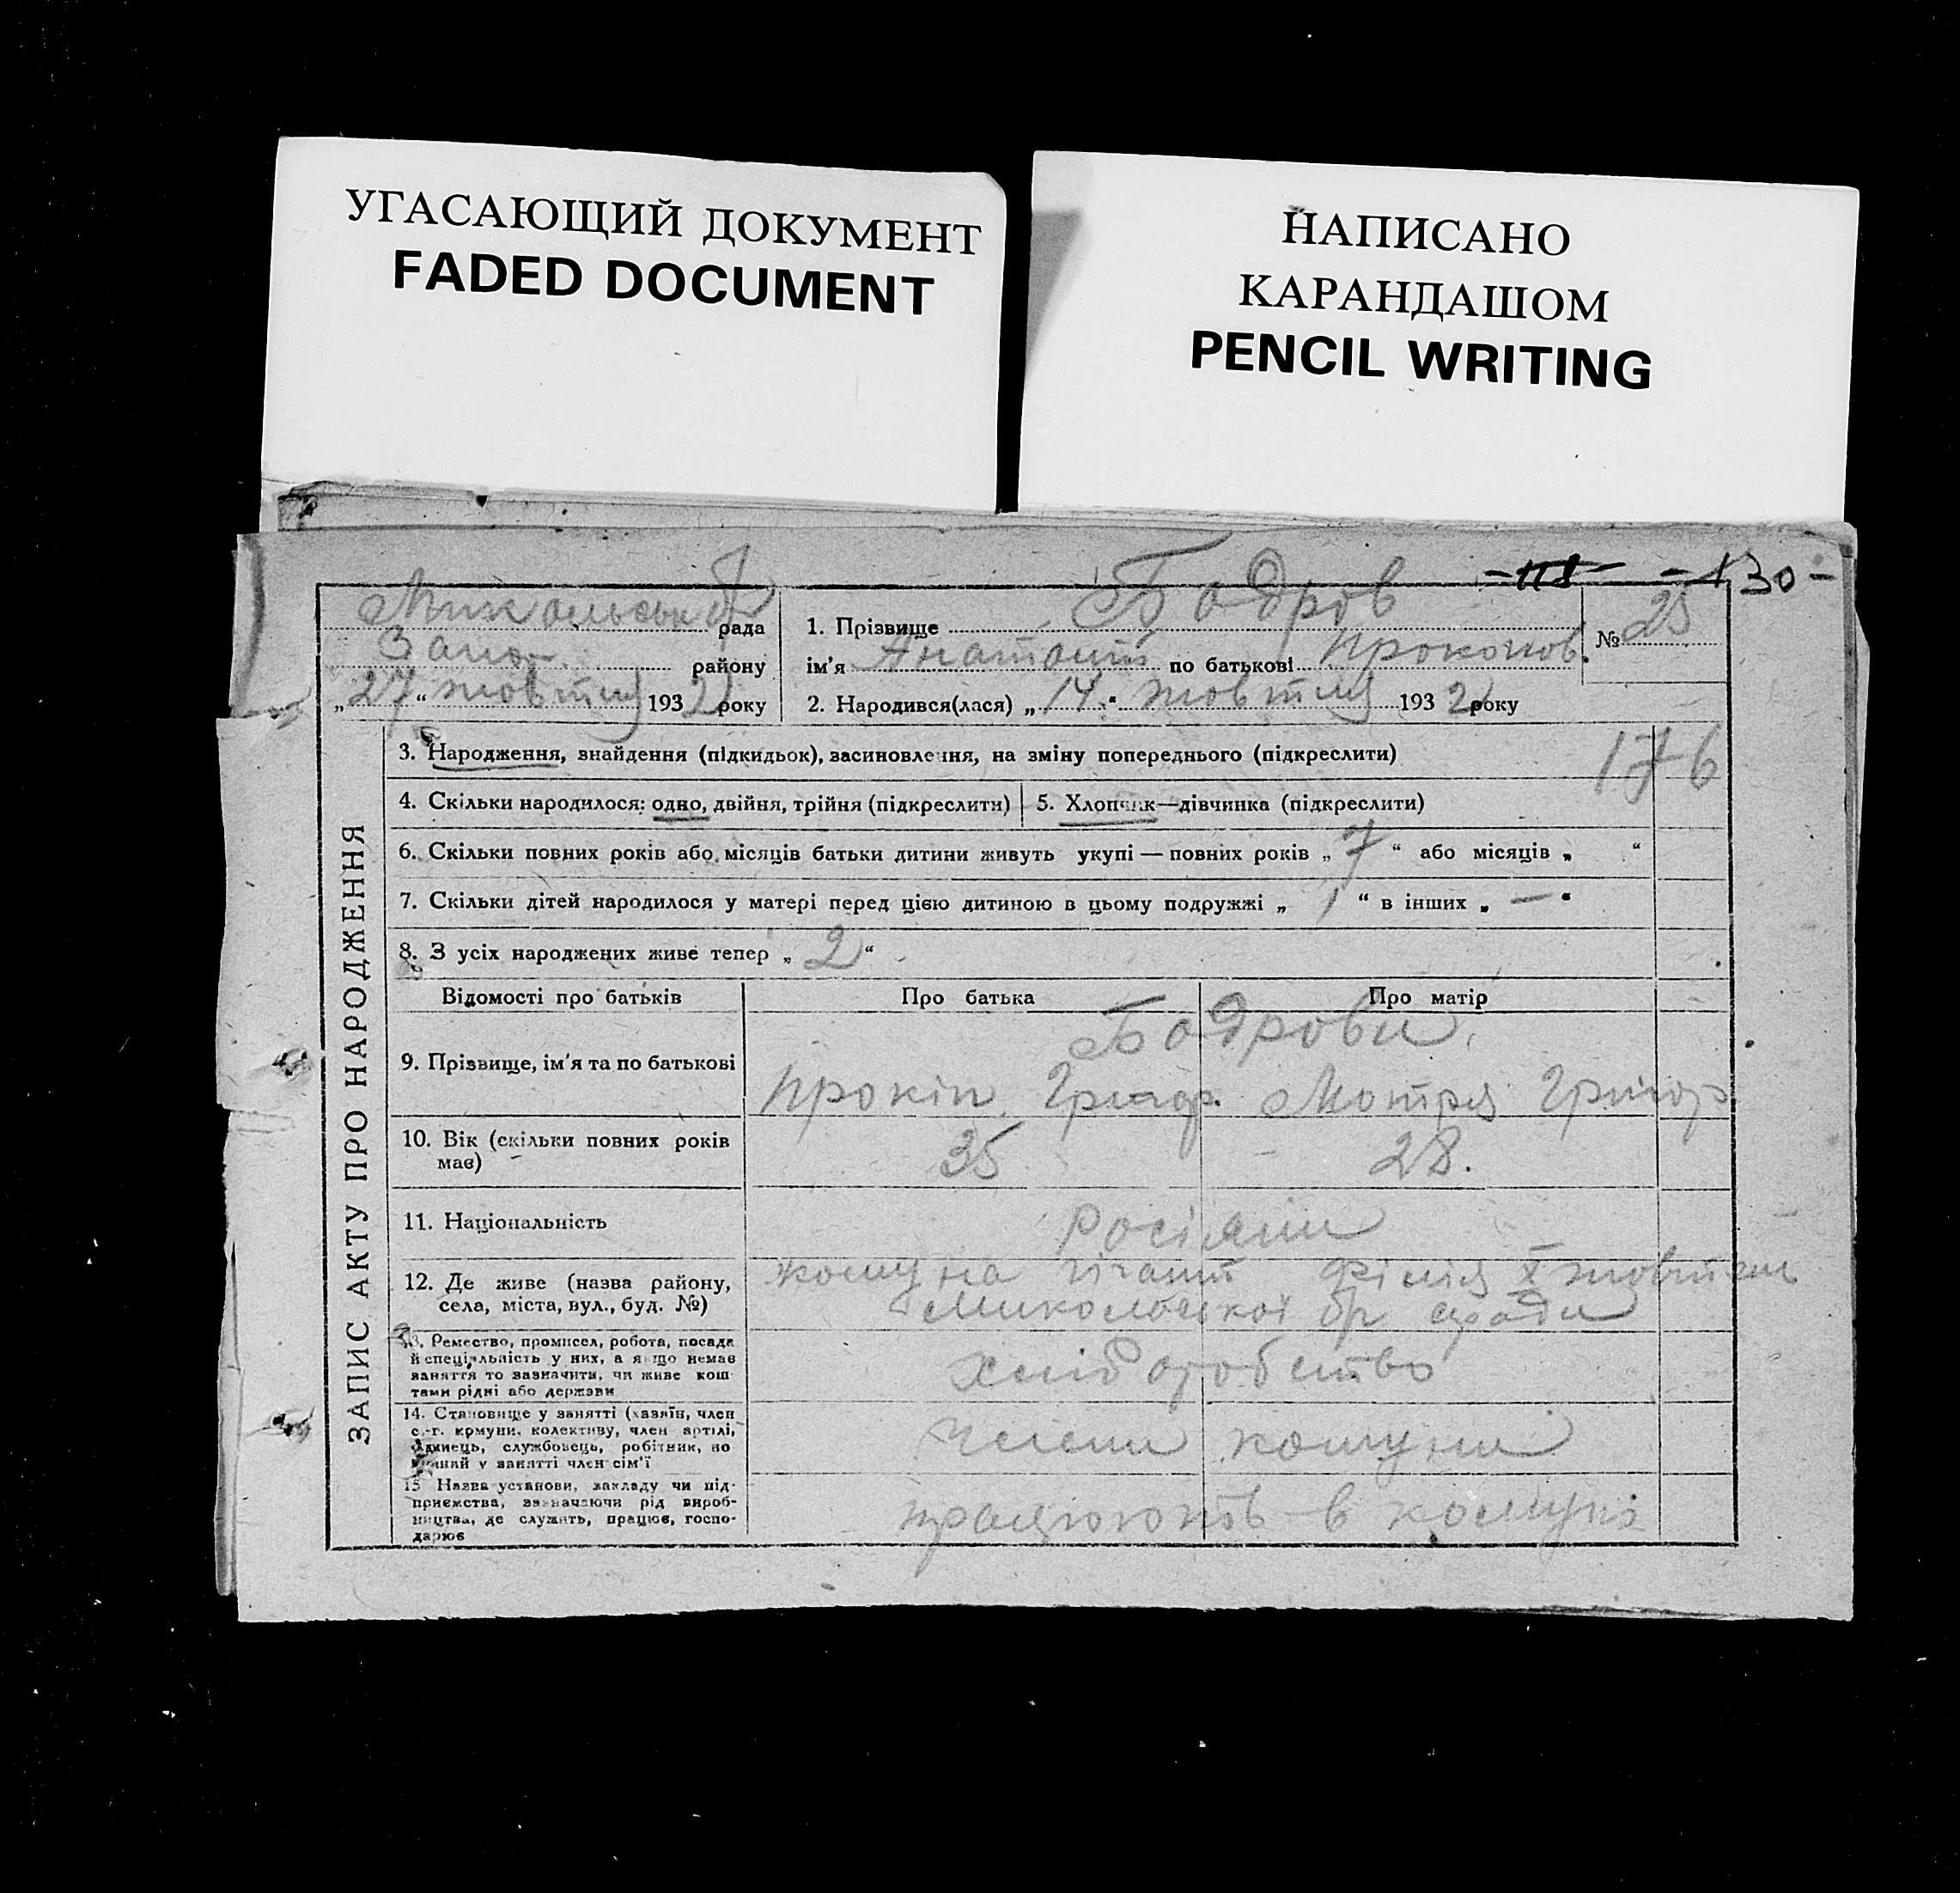 УГАСАЮЩИЙ ДОКУМЕНТ
FADED DOCUMENT
НАПИСАНО
КАРАНДАШОМ
PENCIL WRITING
-118- -130-
рада
Запор. району
„27“ жовтня 1932 року
1. Прізвище Бодров
№ 25
ім'я Анатолій по батькові Прокопов.
2. Народився(лася) „14“ жовтня 1932 року
ЗАПИС АКТУ ПРО НАРОДЖЕННЯ
3. Народження, знайдення (підкидьок), засиновлення, на зміну попереднього (підкреслити)
176
4. Скільки народилося: одно, двійня, трійня (підкреслити)
5. Хлопчик—дівчинка (підкреслити)
6. Скільки повних років або місяців батьки дитини живуть укупі — повних років „7“ або місяців „ “
7. Скільки дітей народилося у матері перед цією дитиною в цьому подружжі „1“ в інших „—“
8. З усіх народжених живе тепер „2“
Відомості про батьків
Про батька
Про матір
9. Прізвище, ім'я та по батькові
Бодрови
Прокіп Григор. Мотря Григор.
10. Вік (скільки повних років
має)
35
28.
11. Національність
Росіяни
12. Де живе (назва району,
села, міста, вул., буд. №)
комуна Гігант філія X жовтня
Миколаєської ради
13. Ремество, промисел, робота, посада
й спеціяльність у них, а якщо немає
заняття то зазначити, чи живе кош-
тами рідні або держави
хліборобство
14. Становище у занятті (хазяїн, член
с.-г. комуни, колективу, член артілі,
одинець, службовець, робітник, по
у занятті член сім'ї
члени комуни
15 Назва установи, закладу чи під-
приємства, зазначаючи рід вироб-
ництва, де служить, працює, госпо-
дарює
працюють в комуні